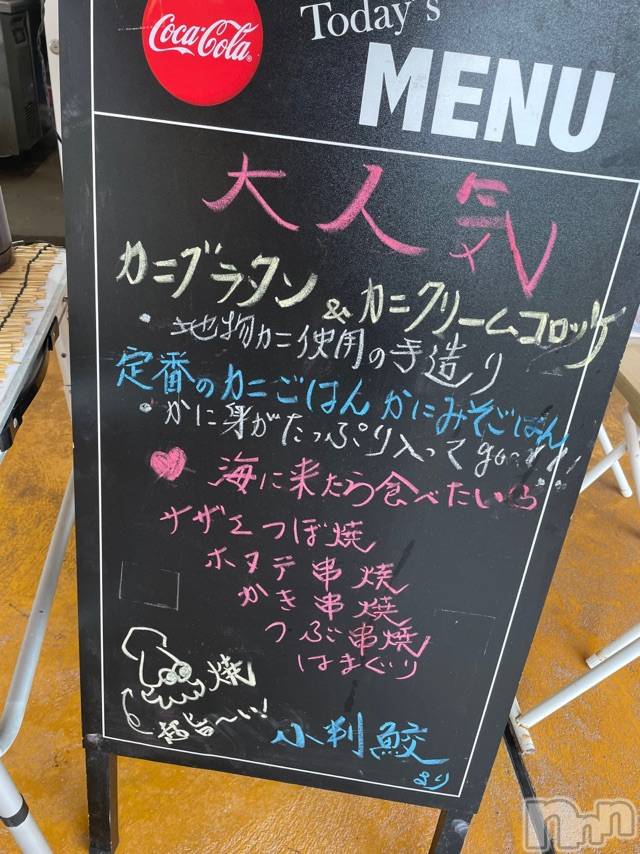 Coca-Cola
Today's
MENU
大人気
カニグラタン & カニクリームコロッケ
・地物カニ使用の手造り
定番のカニごはん かにみそごはん
・かに身がたっぷり入って good!!
♥ 海に来たら食べたい
サザエつぼ焼
ホタテ串焼
かき串焼
つぶ串焼
はまぐり
焼
超旨〜い!
小判鮫
より
nnn